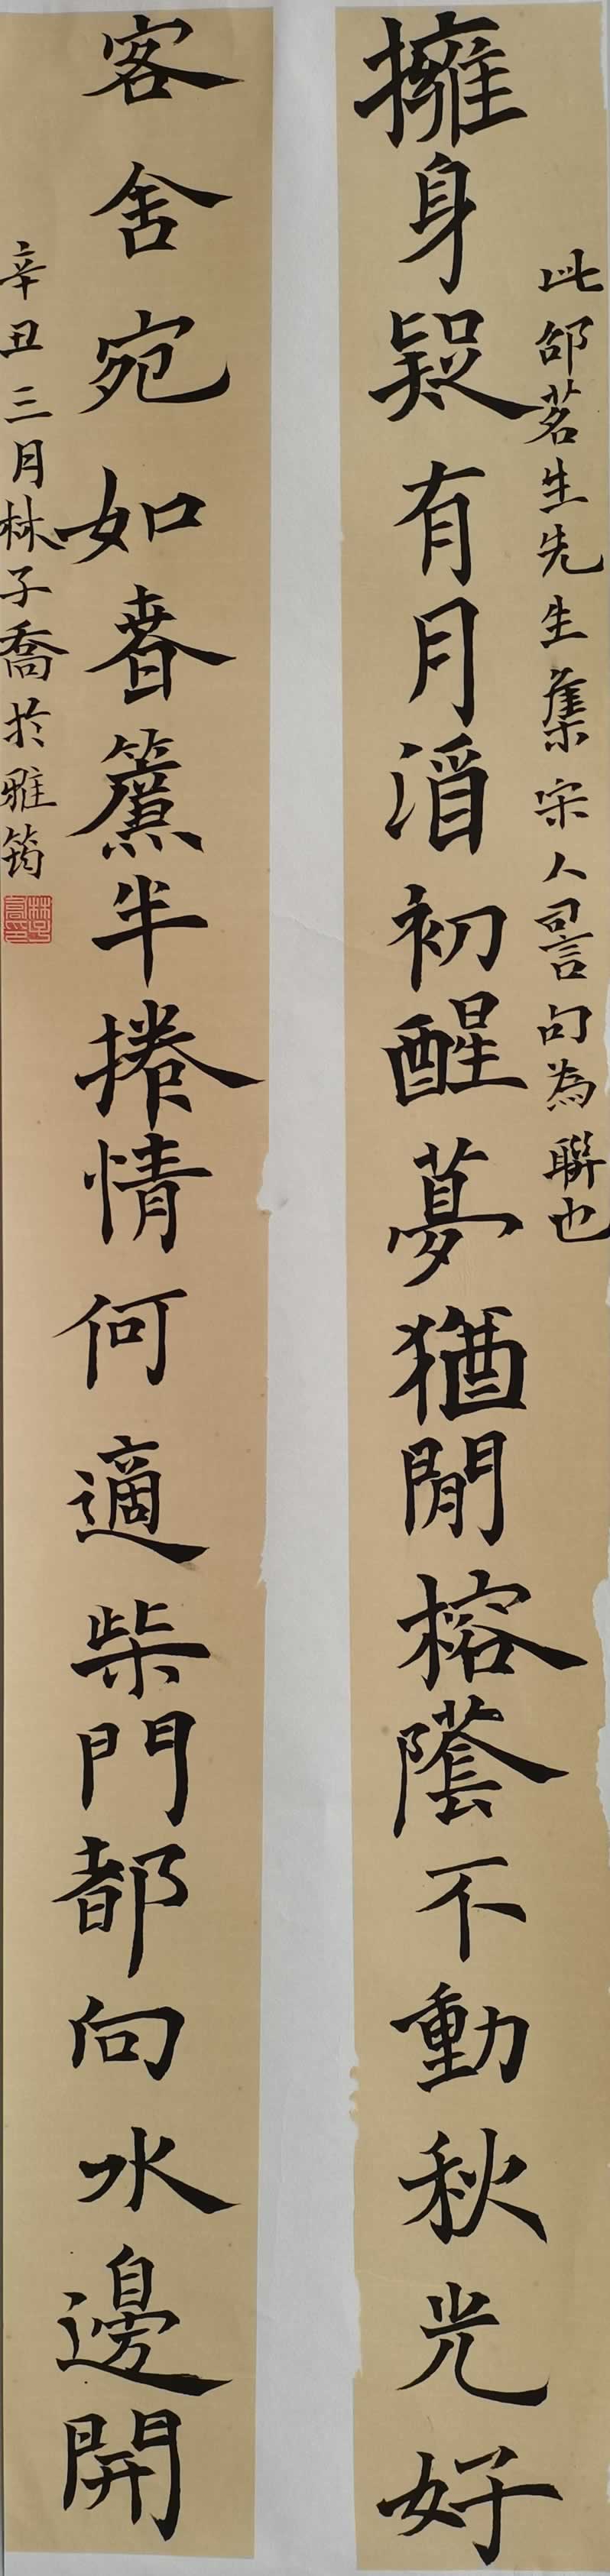 此邵茗生先生集宋人詞句為聯也
擁身疑有月酒初醒夢猶閒榕蔭不動秋光好
客舍宛如春簾半捲情何適柴門都向水邊開
辛丑三月林子喬於雅筠